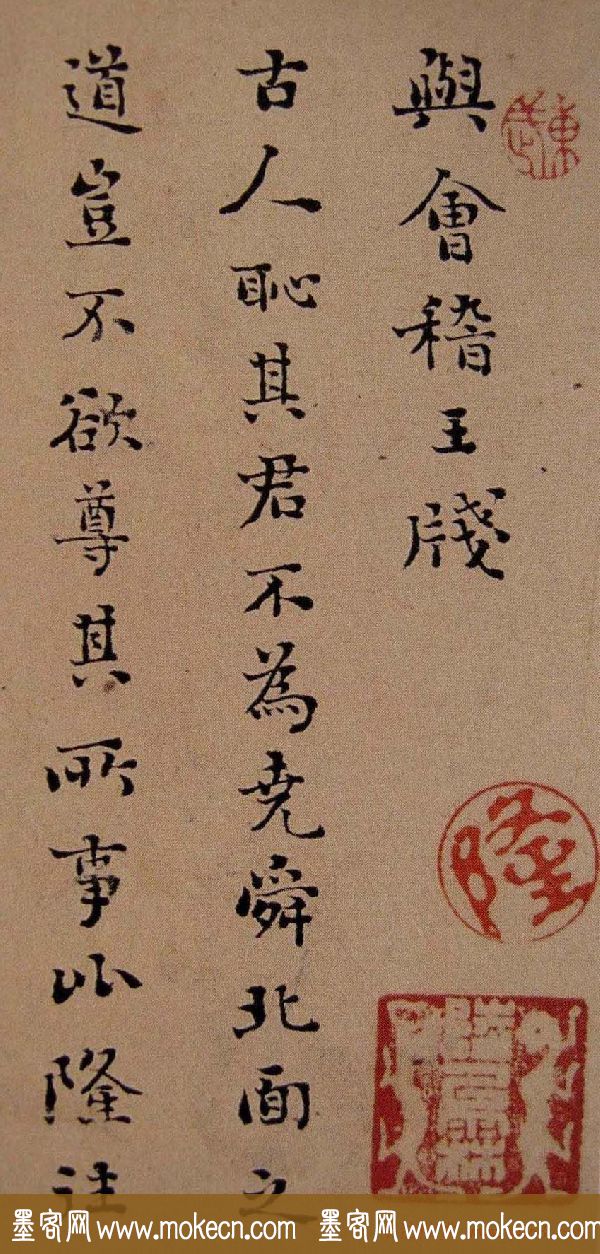 與會稽王牋
古人恥其君不為堯舜北面之
道豈不欲尊其所事比隆往
隆
墨客网 www.mokecn.com 墨客网 www.mokecn.com